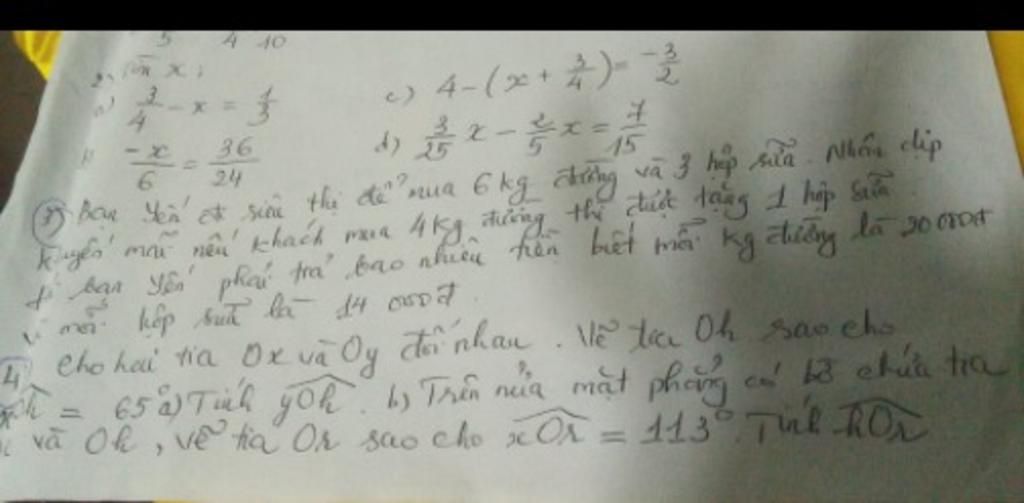 5 4 10
2) Tìm x:
a) 3/4 - x = 1/3 c) 4 - (x + 3/4) = -3/2
-x/6 = 36/24 d) 3/25 x - 2/5 x = 7/15
3) Bạn Yến đi siêu thị để mua 6 kg đường và 3 hộp sữa. Nhân dịp
khuyến mãi nếu khách mua 4 kg đường thì được tặng 1 hộp sữa.
bạn Yến phải trả bao nhiêu tiền biết mỗi kg đường là 20 000đ
và mỗi hộp sữa là 14 000đ.
4) cho hai tia Ox và Oy đối nhau. Vẽ tia Oh sao cho
xOh = 65° a) Tính yOh. b) Trên nửa mặt phẳng có bờ chứa tia
và Oh, vẽ tia Or sao cho xOr = 113°. Tính hOr